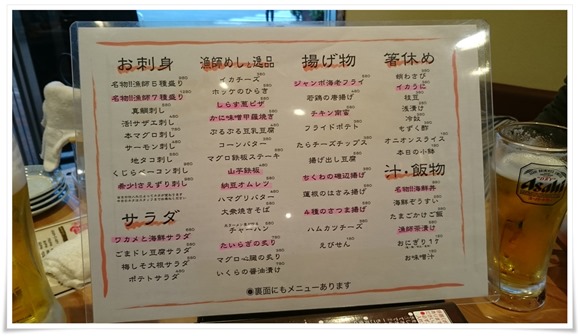 お刺身
名物!!漁師5種盛り
名物!!漁師7種盛り
真鯛刺し
活!サザエ刺し
本マグロ刺し
サーモン刺し
地タコ刺し
くじらベーコン刺し
希少!さえずり刺し
サラダ
ワカメと海鮮サラダ
ごまドレ豆腐サラダ
梅しそ大根サラダ
ポテトサラダ
漁師めしと逸品
イカチーズ
ホッケのひらき
しらす葱ピザ
かに味噌甲羅焼き
ぷるぷる豆乳豆腐
コーンバター
マグロ鉄板ステーキ
山芋鉄板
納豆オムレツ
ハマグリバター
大衆焼きそば
チャーハン
たいらぎの炙り
マグロ心臓の炙り
いくらの醤油漬け
揚げ物
ジャンボ海老フライ
若鶏の唐揚げ
チキン南蛮
フライドポテト
たらチーズチップス
揚げ出し豆腐
ちくわの磯辺揚げ
蓮根のはさみ揚げ
4種のさつま揚げ
ハムカツチーズ
えびせん
箸休め
蛸わさび
イカうに
枝豆
浅漬け
冷奴
もずく酢
オニオンスライス
本日の小鉢
汁・飯物
名物!!海鮮丼
海鮮ぞうすい
たまごかけご飯
漁師茶漬け
おにぎり1ケ
お味噌汁
◉裏面にもメニューあります
Asahi